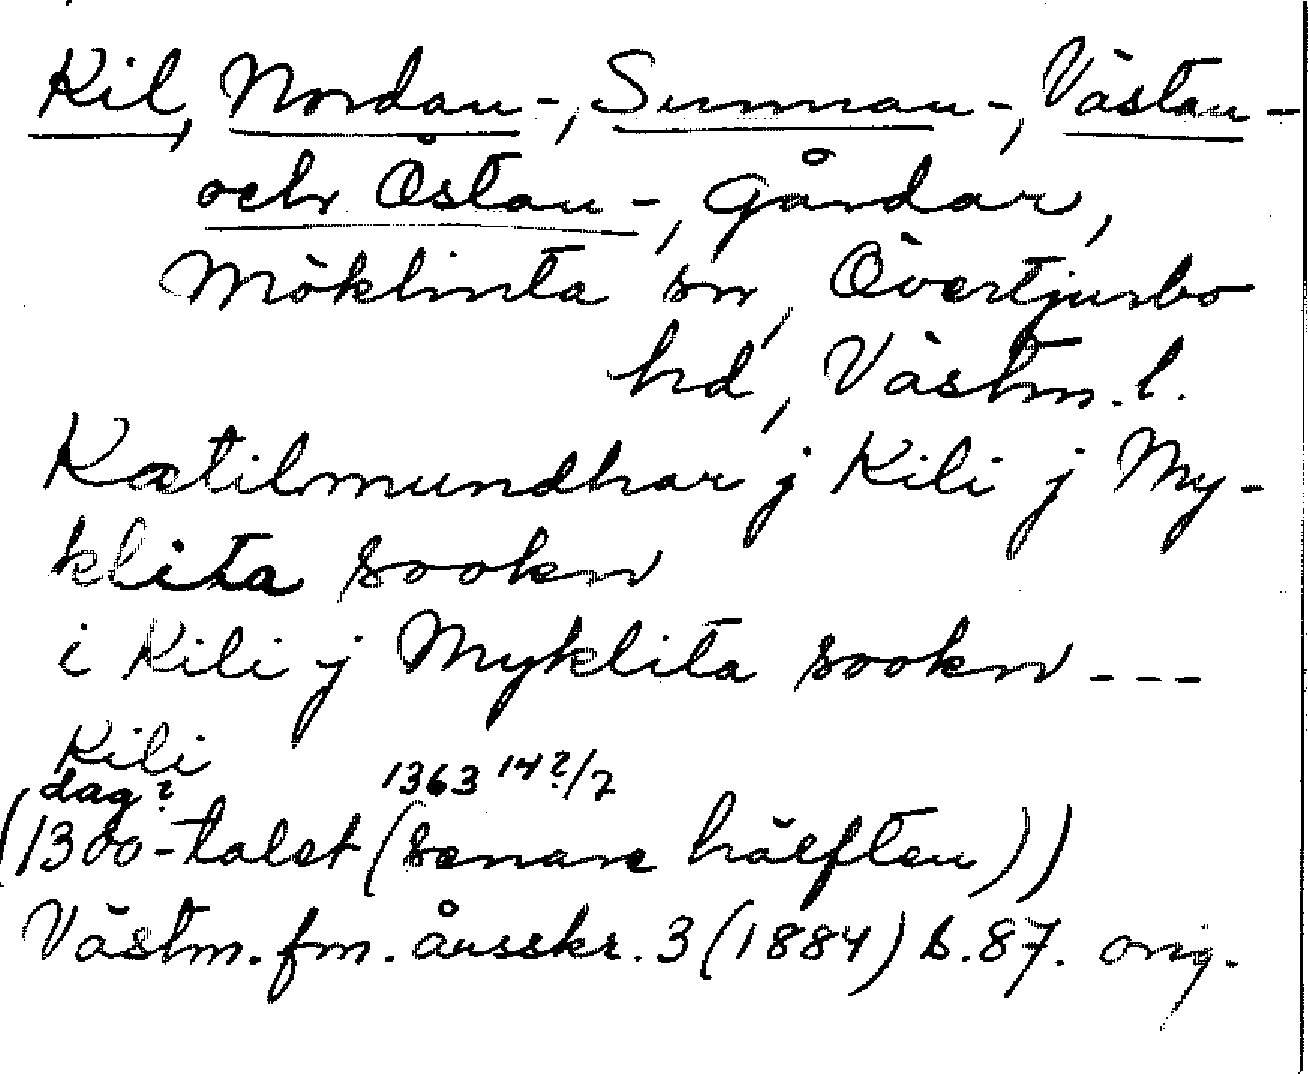 Kil, Nordan-, Sunnan-, Västan-
och Östan-, gårdar,
Möklinta sn, Övertjurbo
hd, Västm. l.
Kætilmundhar j Kili j My-
klita sookn
i Kili j Myklita sookn ---
Kili
dag? 1363 14?/2
(1300-talet (senare hälften))
Västm. fm. årsskr. 3 (1884) s. 87. orig.